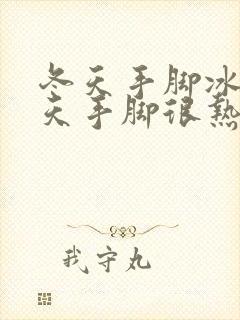 冬天手脚冰
天手脚很热
我守丸